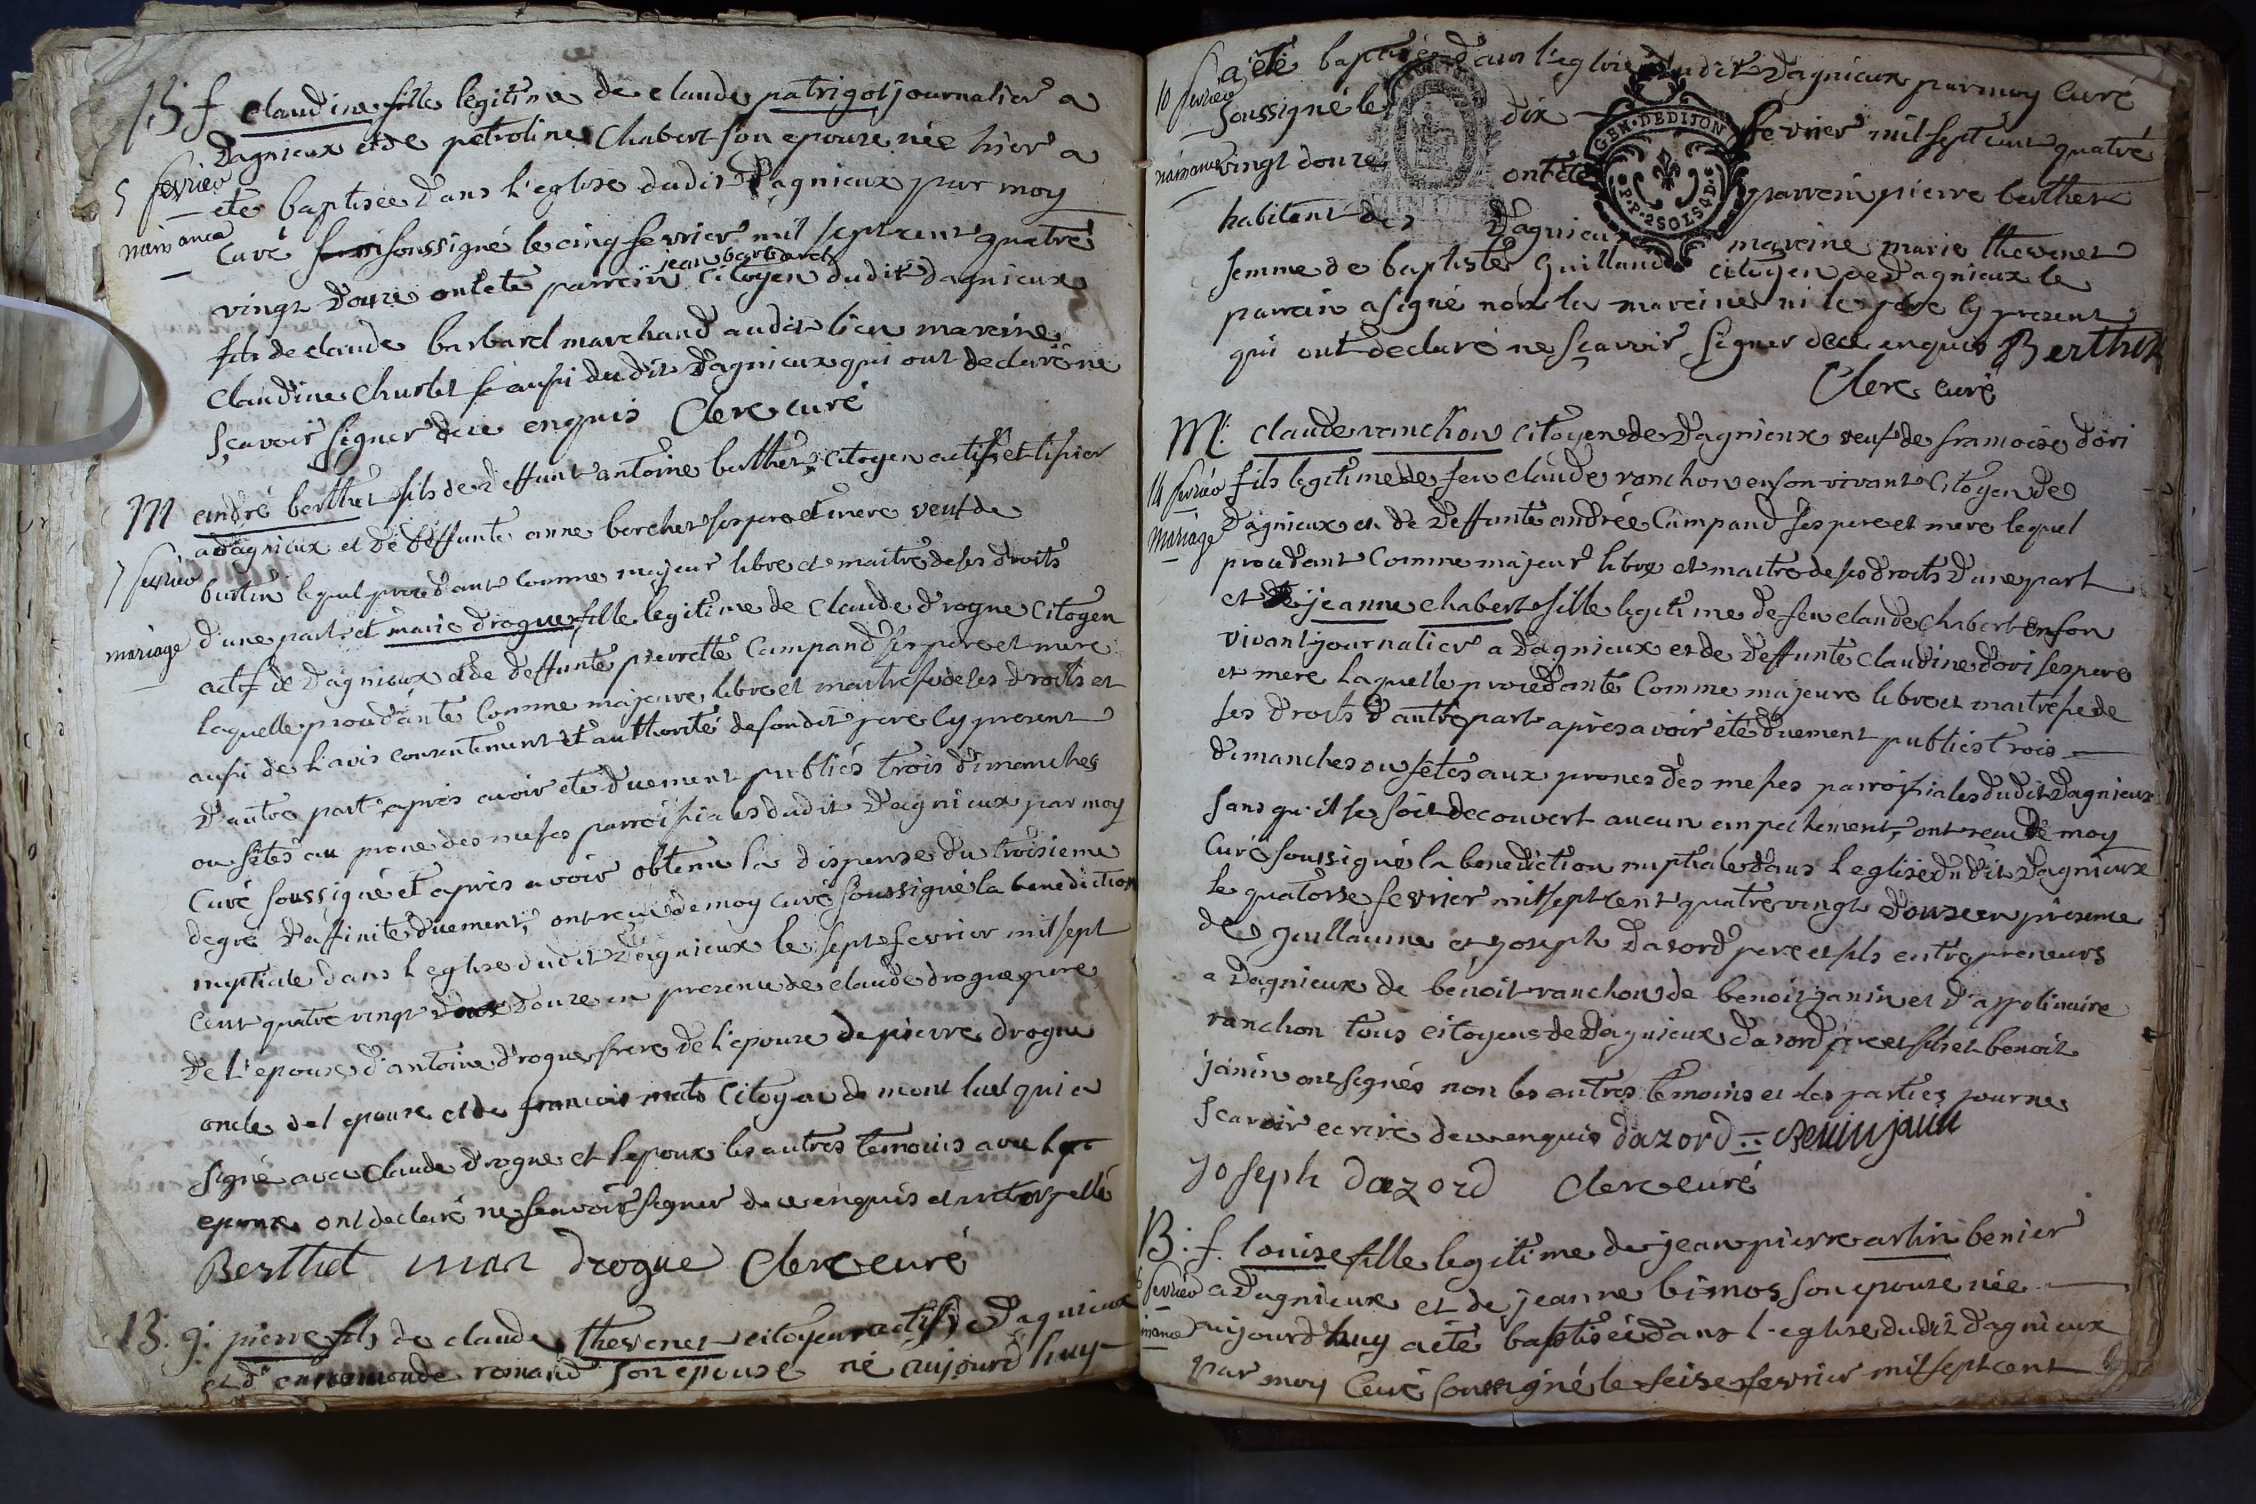 B f claudine fille legitime de claude patrigot journalier a
Dagnieux et de petroline Chabert son epouze née hier a
5 fevrier
été baptisée dans l'eglise dudit Dagnieux par moy
naissance
Curé soussigné le cinq fevrier mil sept cent quatre
jean barbaret
vingt douze ont eté parrein citoyen dudit dagnieux
fils de claude barbaret marchand audit lieu mareine
Claudine Churlet aussi dudit Dagnieux qui ont declaré ne
sçavoir signer de ce enquis Clerc curé
M andré berthet fils de deffunt antoine berthet citoyen actif et tissier
a dagnieux et de deffunte anne borchet ses pere et mere veuf de
7 fevrier
lequel procedant comme majeur libre et maitre de ses droits
mariage
d'une part et marie drogue fille legitime de Claude drogue Citoyen
actif de Dagnieux et de deffunte pierrette Campand ses pere et mere
laquelle procedante comme majeure libre et maitresse de ses droits et
aussi de l'avis consentement et authorité de son dit pere cy present
d'autre part après avoir eté duement publiés trois dimanches
ou fêtes au prone des messes parroissiales dudit Dagnieux par moy
Curé soussigné et après avoir obtenu la dispense du troisieme
degré d'affinité duement, ont reçu de moy curé soussigné la benediction
nuptiale dans l'eglise dudit Dagnieux le sept fevrier mil sept
cent quatre vingt douze en presence de claude drogue pere
de l'epouze d'antoine drogue frere de l'epouze de pierre drogue
oncle de l'epouze et de francois Citoyen de mont luel qui a
signé avec Claude drogue et l'epoux les autres temoins avec
epouze ont declaré ne scavoir signer de ce enquis et interpellé
Berthet drogue Clerc curé
B. g. pierre fils de claude thevenet citoyen actif de Dagnieux
et d' romand son epouse né aujourd'huy
10 fevrier
a été baptisé dans l'eglise dudit Dagnieux par moy Curé
soussigné le dix fevrier mil sept cent quatre
GEN. DE DIJON
P.P. 2 SOLS 4 D.
naissance
vingt douze ont eté parrein pierre berthet
habitant de Dagnieux mareine marie thevenet
femme de baptiste Guilland citoyen de Dagnieux le
parrein a signé non la mareine ni le pere cy present
qui ont declaré ne sçavoir signer de ce enquis Berthet
Clerc curé
M. claude ranchon citoyen de Dagnieux veuf de francoise dori
14 fevrier
fils legitime de feu claude ranchon en son vivant Citoyen de
mariage
Dagnieux et de deffunte andrée Campand ses pere et mere lequel
procedant Comme majeur libre et maitre de ses droits d'une part
et jeanne chabert fille legitime de feu claude chabert en son
vivant journalier a Dagnieux et de deffunte claudine dori ses pere
et mere laquelle procedante Comme majeure libre et maitresse de
ses droits d'autre part après avoir été duement publiés trois
dimanches ou fêtes aux prones des messes parroissiales dudit Dagnieux
sans qu'il se soit decouvert aucun empechement, ont reçu de moy
Curé soussigné la benediction nuptiale dans l'eglise dudit Dagnieux
le quatorze fevrier mil sept cent quatre vingt douze en presence
de guillaume et joseph dazord pere et fils entrepreneurs
a Dagnieux de benoit ranchon de benoit janin et d'appolinaire
ranchon tous citoyens de Dagnieux dazord pere et fils et benoit
janin ont signés non les autres temoins et les parties pour ne
scavoir ecrire de ce enquis dazord Benoit janin
joseph dazord Clerc curé
B. f. louise fille legitime de jean pierre artin benier
fevrier
a Dagnieux et de jeanne bimos son epouze née
aujourd'huy a eté baptisée dans l'eglise dudit dagnieux
par moy Curé soussigné le seize fevrier mil sept cent